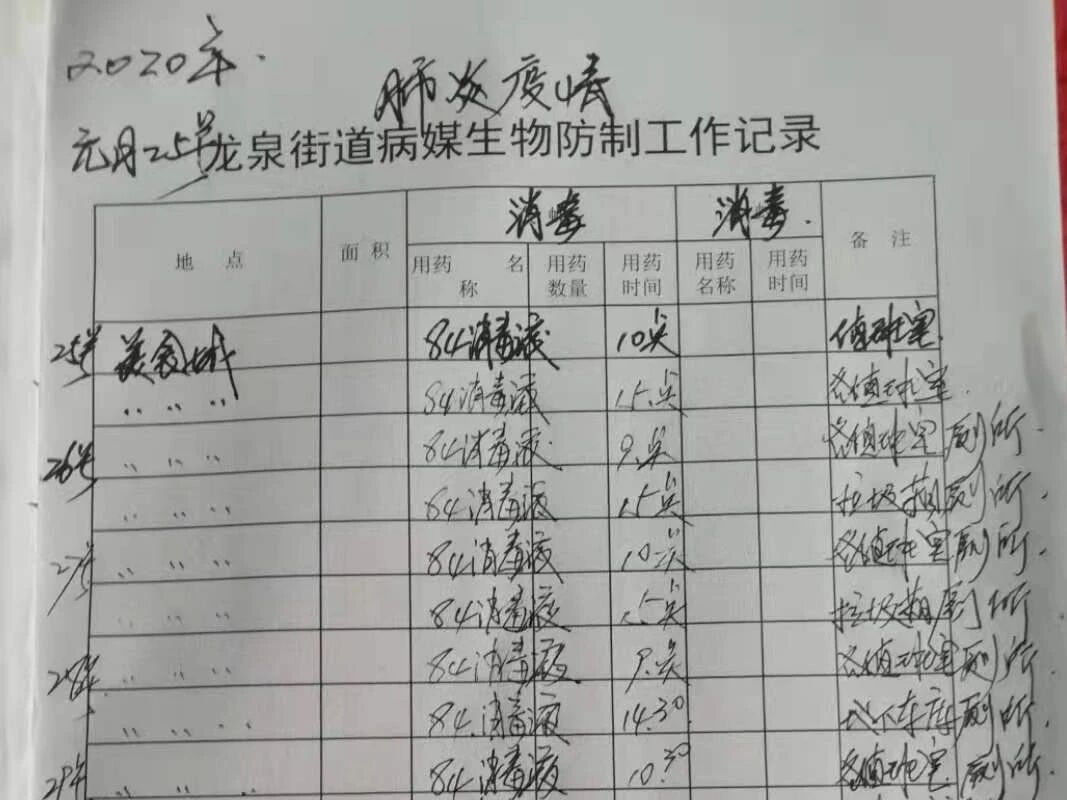 2020年.
肺炎疫情
元月25号龙泉街道病媒生物防制工作记录
地 点 面 积 消毒 消毒. 备 注
用药名称 用药数量 用药时间 用药名称 用药时间
25号 美食城 84消毒液 10点 值班室.
〃 〃 〃 84消毒液 15点 各值班室.
26号 〃 〃 〃 84消毒液 9点 各值班室厕所.
〃 〃 〃 84消毒液 15点 垃圾 厕所.
27号 〃 〃 〃 84消毒液 10点 各值班室厕所.
〃 〃 〃 84消毒液 15点 垃圾 厕所
28号 〃 〃 〃 84消毒液 9点 各值班室厕所.
〃 〃 〃 84消毒液 14:30 车库厕所.
29号 〃 〃 〃 84消毒液 10:30 各值班室厕所.